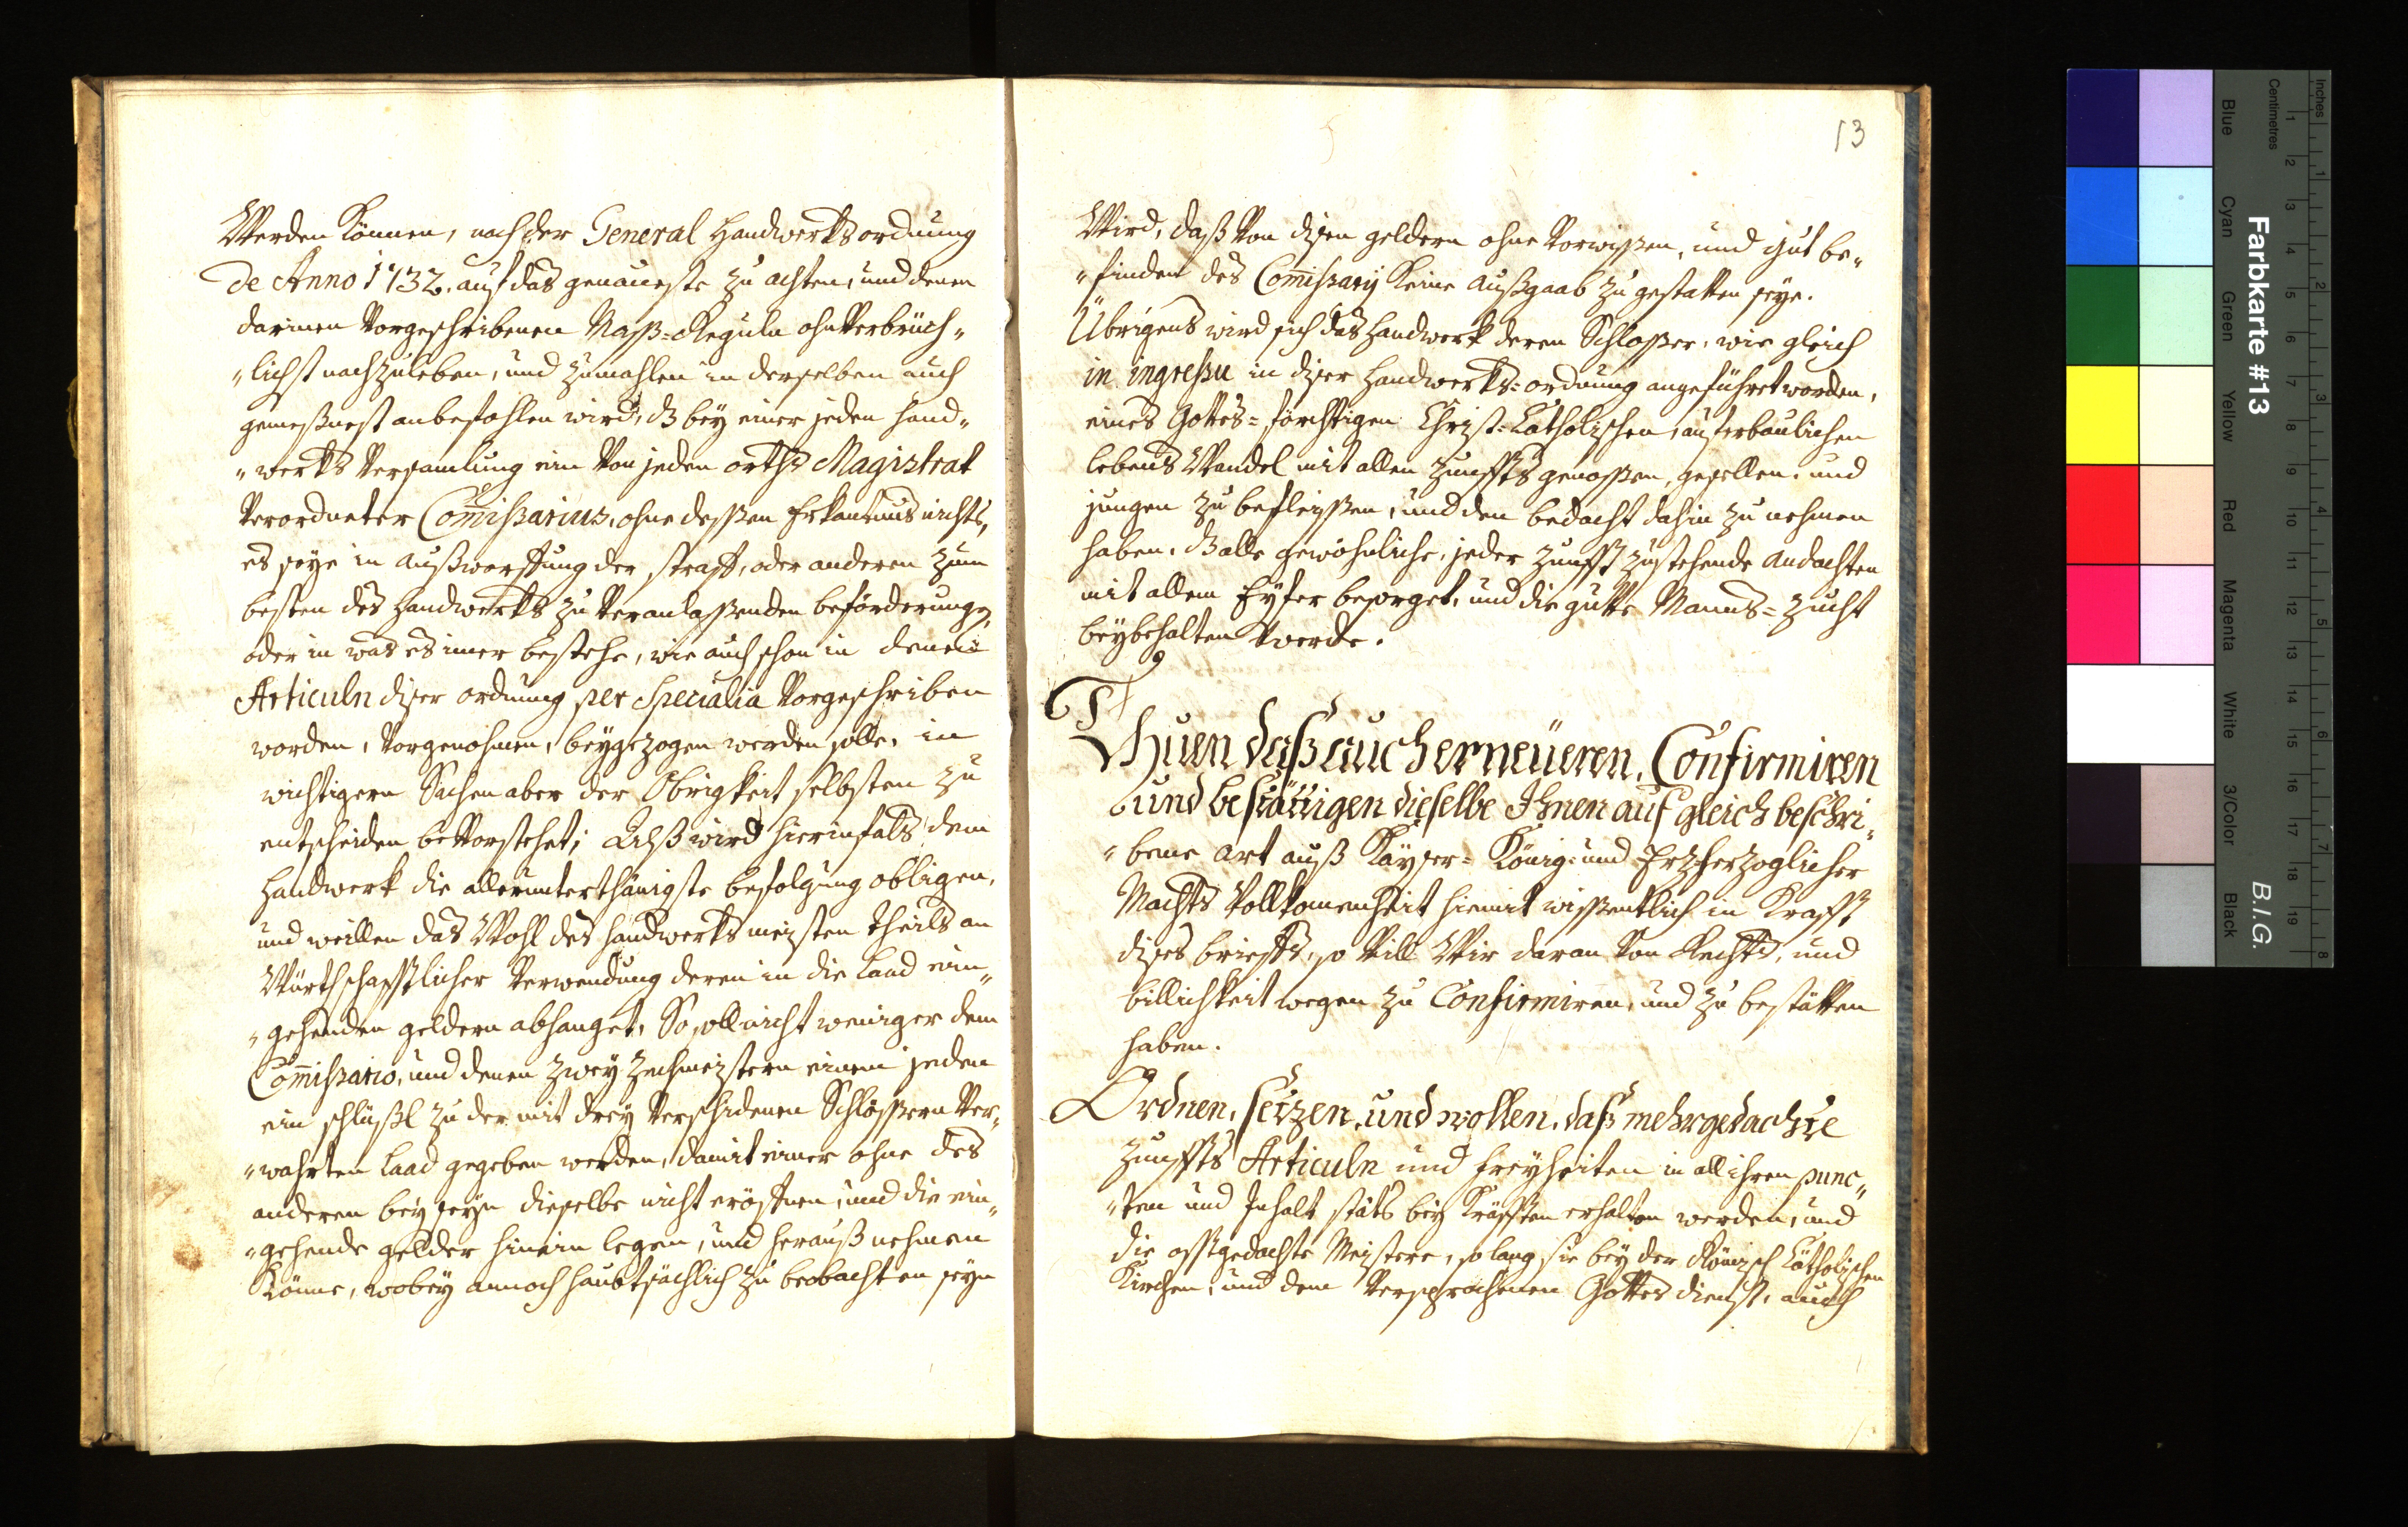 Werden können, nach der General Handwerksordnung
de Anno 1732. auf das genaueste zu achten, und denen
darinen Vorgeschribenen Maß=Reguln ohnVerbrüch„
„lichst nachzuleben, und zumahlen in derselben auch
gemeßnest anbefohlen wird, dz bey einer jeden Hand„
„werks Versamlung ein Von jeden orths Magistrat
Verordneter Com̄ißarius, ohne deßen Erkantnus nichts,
es seye in außwerffung der straff, oder anderen zum
besten des Handwerks zu Veranlaßenden beförderungen,
oder in was es im̄er bestehe, wie auch schon in denen
Articuln diser ordnung per Specialia Vorgeschriben
worden, Vorgenohmen, beygezogen werden solle, in
wichtigern Sachen aber der Obrigkeit selbsten zu
entscheiden beVorstehet; Alß wird hierinfals dem
Handwerk die allerunterthänigste befolgung obligen,
und weillen das Wohl des Handwerks meisten theils an
Würthschafftlicher Verwendung deren in die Laad ein„
„gehenden geldern abhanget, So soll nicht weniger dem
Com̄ißario, und denen zwey Zechmeistern einem jeden
ein schlüßl zu der mit drey Verschidenen Schlößern Ver„
„wahrten Laad gegeben werden, damit einer ohne des
anderen beyseyn dieselbe nicht eröffnen, und die ein„
„gehende gelder hinein legen, und herauß nehmen
könne, wobey annoch haubtsächlich zu beobachten seyn
13
Wird, daß Von disen geldern ohne Vorwißen, und gut be„
„finden des Com̄ißarij keine Außgaab zu gestatten seye.
Übrigens wird sich das Handwerk deren Schloßer, wie gleich
in ingreßu in diser Handwerks=ordnung angeführet worden,
eines Gottes=förchtigen Christ=Catholischen, auferbaulichen
lebens Wandel mit allen Zunffts genoßen, gesellen, und
jungen zu befleißen, und den bedacht dahin zu nehmen
haben, dz alle gewöhnliche, jeder Zunfft zustehende andachten
mit allem Eyfer besorget, und die gutte Manns=Zucht
beybehalten werde.
Thuen daß auch erneüeren, Confirmiren
und bestättigen dieselbe Ihnen auf gleich beschri„
„bene Art auß Kayser= König= und Ertzherzoglicher
Machts Vollkomenheit hiemit wißentlich in Krafft
dises brieffs, so Vill Wir daran Von Rechts, und
billichkeit wegen zu Confirmiren, und zu bestätten
haben.
Ordnen, setzen, und wollen, daß mehrgedachte
Zunffts Articuln und Freyheiten in all ihren punc„
„ten und Inhalt stäts bey Kräfften erhalten werden, und
die offtgedachte Meistere, so lang sie bey der Römisch Catholischen
Kirchen, und dem Versprochenen Gottes dienst, auch
Farbkarte #13
B.I.G.
Inches
Centimetres
1 2 3 4 5 6 7 8
1 2 3 4 5 6 7 8 9 10 11 12 13 14 15 16 17 18 19
Blue
Cyan
Green
Yellow
Red
Magenta
White
3/Color
Black